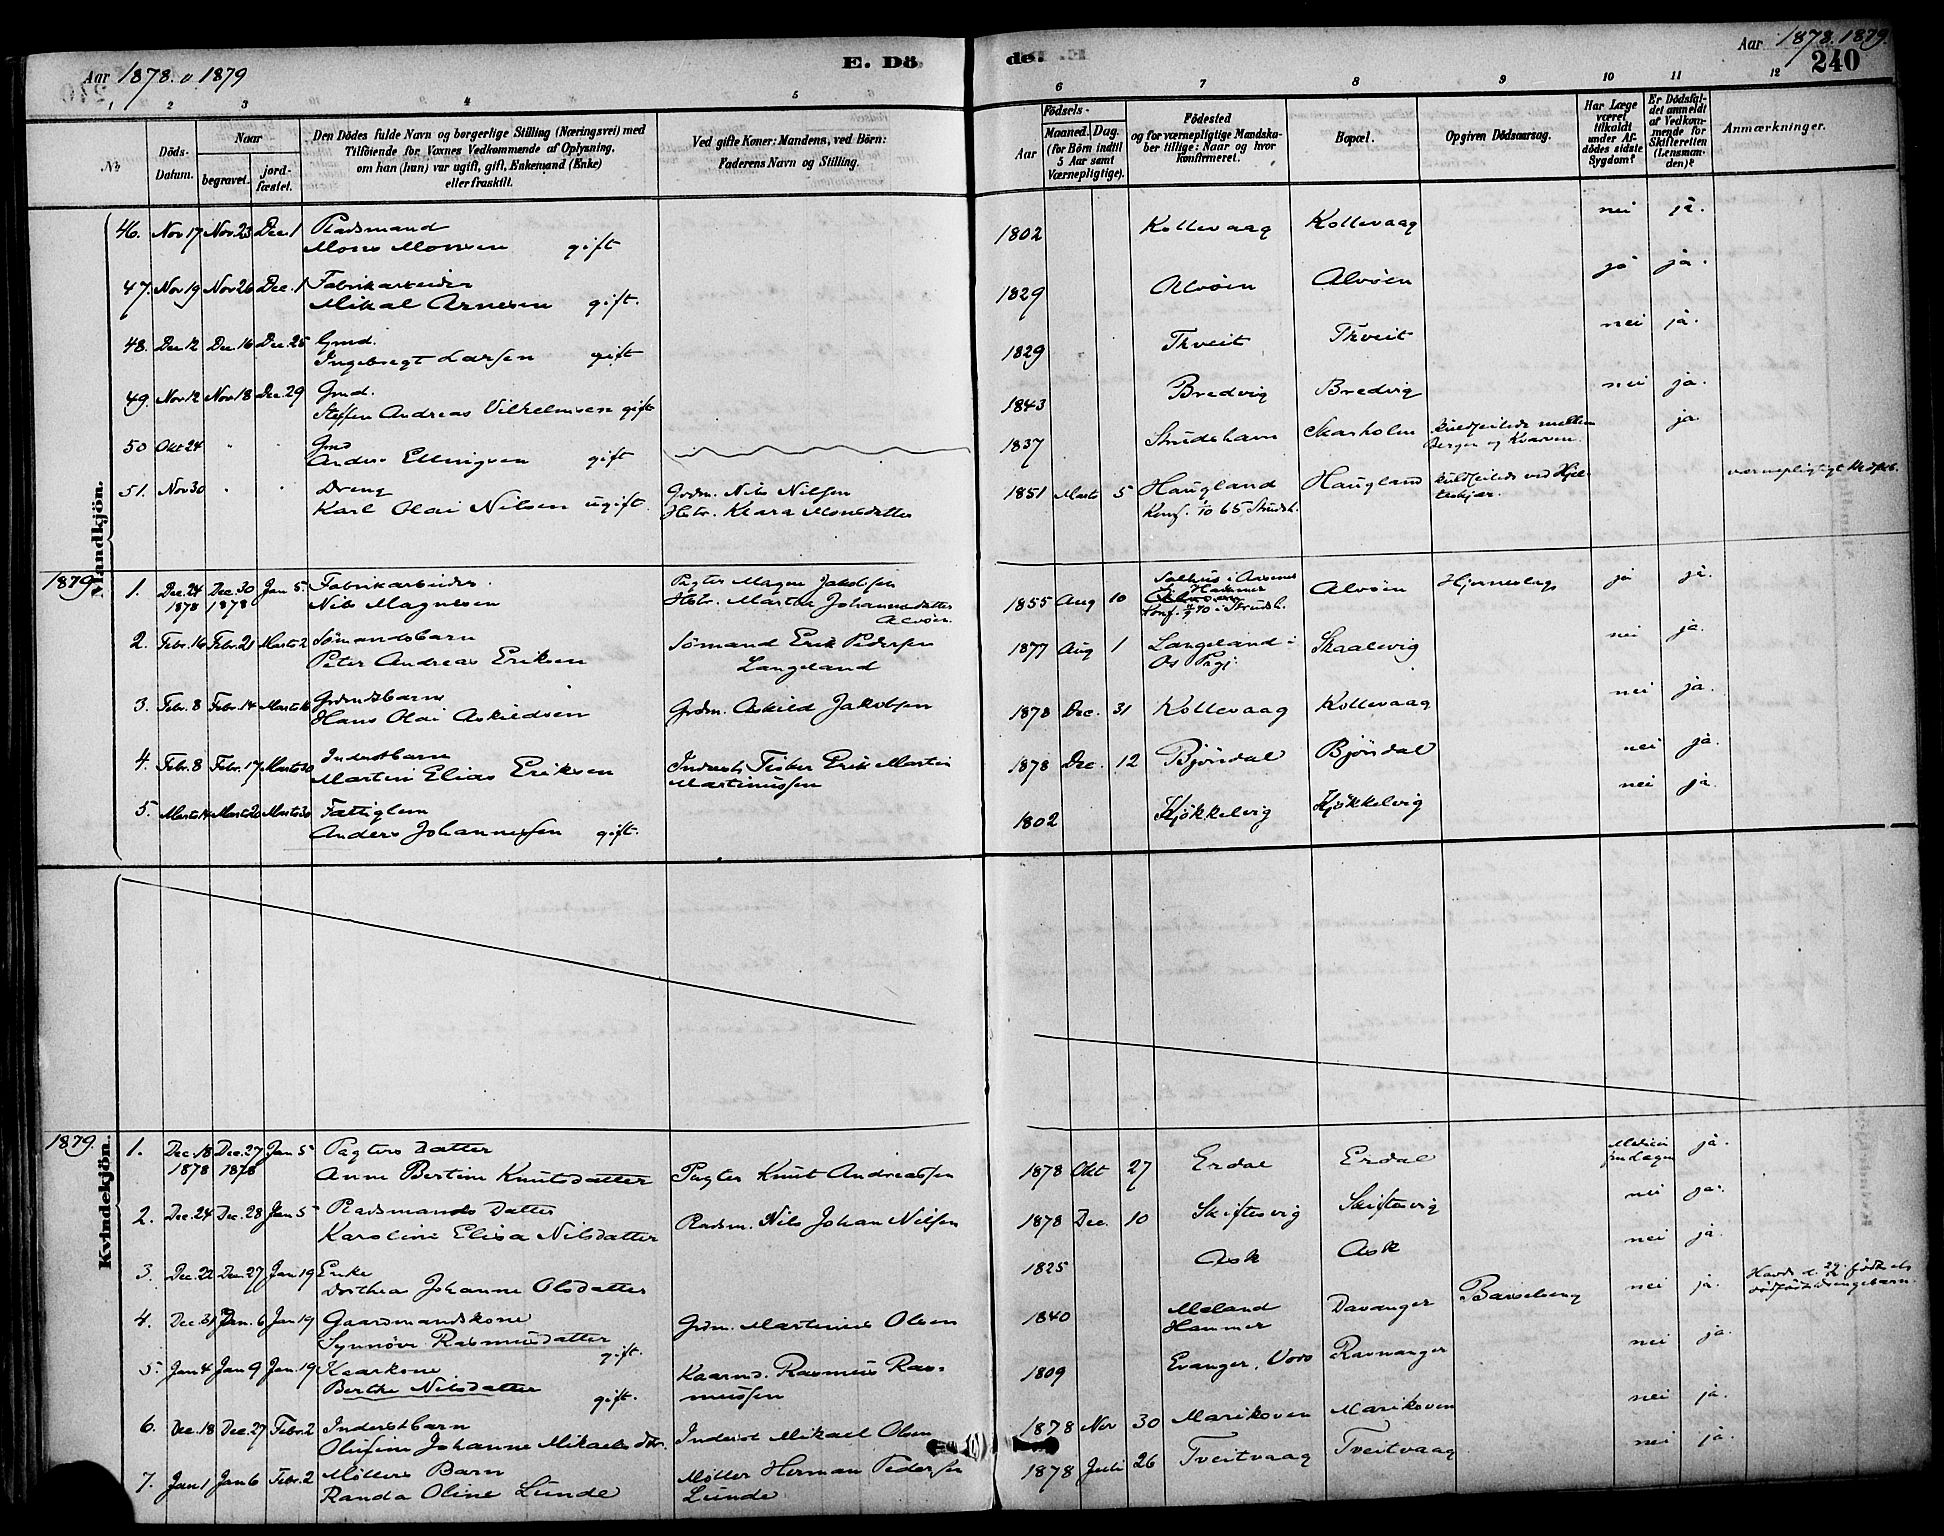 Aar 1878. o 1879
E. Dö
de.
Aar 1878. 1879.
240
1 2 3 4 5 6 7 8 9 10 11 12
No
Döds-Datum.
Naar
begravet.
jord-fæstet.
Den Dödes fulde Navn og borgerlige Stilling (Næringsvei) med
Tilföiende for Voxnes Vedkommende af Oplysning,
om han (hun) var ugift, gift, Enkemand (Enke)
eller fraskilt.
Ved gifte Koner: Mandens, ved Börn:
Faderens Navn og Stilling.
Födsels-
Aar
Maaned. Dag.
(for Börn indtil
5 Aar samt
Værnepligtige).
Födested
og for værnepligtige Mandska-
ber tillige: Naar og hvor
konfirmeret.
Bopæl.
Opgiven Dödsaarsag.
Har Læge
været
tilkaldt
under Af-
dödes sidste
Sygdom?
Er Dödsfal-
det anmeldt
af Vedkom-
mende for
Skifteretten
(Lensman-
den)?
Anmærkninger.
Mandkjön.
46. Nov 17 Nov. 23 Dec. 1 Pladsmand
Mons Monsen gift 1802 Kollevaag Kollevaag nei ja.
47. Nov 19 Nov 26 Dec. 1 Fabrikarbeider
Mikal Arnesen gift. 1829 Alvøen Alvøen ja ja.
48. Dec 12 Dec. 16 Dec. 25 Gmd.
Ingebrigt Larsen gift 1829 Thveit Thveit nei ja.
49. Nov 12 Nov 18 Dec. 29 Gmd.
Steffen Andreas Vilhelmsen gift 1843 Bredvig Bredvig nei ja.
50 Okt 24 " " Gmd
Anders Ellingsen gift 1837 Strudshavn Skarholm kuldseilede mellem
Bergen og Kvarven. ja
51. Nov 30 " " Dreng
Karl Olai Nilsen ugift. Grdm. Nils Nilsen
Hstr. Klara Monsdatter 1851 Marts 5 Haugland
Konf. 1/10 65, Strudsh. Haugland kuldseilede ved Hjel-
teskjær. værnepligtigt
1879
1. Dec. 24 Dec. 30 Jan 5. Fabrikarbeider.
1878 1878 Nils Magnesen Pagter Magne Jakobsen
Hstr. Martha Johannesdatter
Alvøen. 1855 Aug 10 Salhus i
Hammer
Konf. 70 i Strudsh. Alvøen Hjerneslag ja ja.
2. Febr. 16 Febr. 21 Marts 2 Sømandsbarn
Peter Andreas Eriksen Sømand Erik Pedersen
Langeland 1877 Aug 1 Langeland i
Os Prgj. Skaalevig nei ja.
3. Febr. 8 Febr. 14 Marts 16 Grdmdsbarn
Hans Olai Askildsen Grdm. Askild Jakobsen 1878 Dec. 31 Kollevaag Kollevaag nei ja.
4. Febr. 8 Febr. 17 Marts 30 Inderstbarn
Martin Elias Eriksen Inderst, Fisker Erik Martin
Martinussen 1878 Dec. 12 Bjørndal Bjørndal nei ja.
5. Marts 14 Marts 20 Marts 30 Fattiglem
Anders Johannessen gift. 1802 Kjøkkelvig Kjøkkelvig nei ja.
1879.
Kvindekjön.
1. Dec. 18 Dec. 27 Jan 5 Pagters Datter
1878 1878 Anne Bertine Knutsdatter Pagter Knut Andreassen 1878 Okt 27 Erdal Erdal Medicin ja.
2. Dec. 24 Dec. 28 Jan 5 Pladsmands Datter
Karoline Elisa Nilsdatter Pladsm. Nils Johan Nilsen 1878 Dec. 10 Skiftesvig Skiftesvig nei ja.
3. Dec. 22 Dec. 27 Jan. 19 Enke
Dorthea Johanne Olsdatter 1825 Ask Ask nei ja.
4. Dec. 31 Jan. 6 Jan 19 Gaardmandskone
Synnöve Rasmusdatter gift. Grdm. Martinus Olsen 1840 Meland
Hammer Davanger Barselseng nei ja. Havde d. 29. födt et
dödfödt Drengebarn.
5. Jan 4 Jan 9 Jan. 19 Kaarkone
Berthe Nilsdatter gift. Kaarmd. Rasmus Ras-
mussen 1809 Evanger, Voss Ravnanger nei ja.
6. Dec. 18 Dec. 27 Febr. 2 Inderstbarn
Olufine Johanne Mikaelsdtr. Inderst Mikael Olsen 1878 Nov 30 Marikoven Marikoven nei ja.
7. Jan 1 Jan 6 Febr. 2 Møllers Barn
Randa Oline Lunde Møller Herman Pedersen
Lunde 1878 Juli 26 Tveitvaag Tveitvaag nei ja.